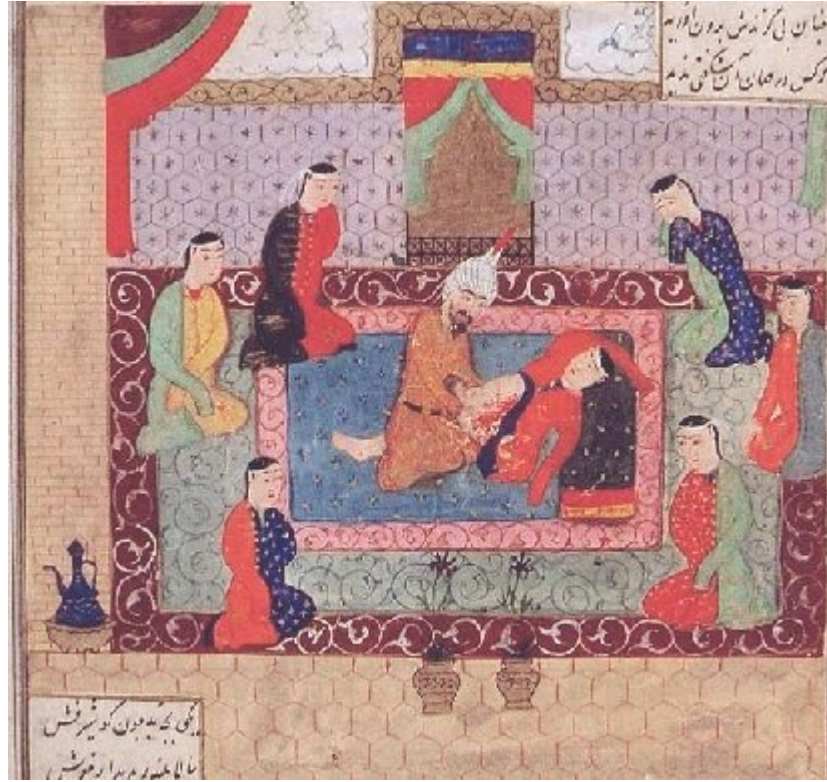 چنان بی گزندش برون آورید
که کس در جهان آن شگفتی ندید
یکی بچه بد چون گو شیرفش
ببالا بلند و بدیدار خوش